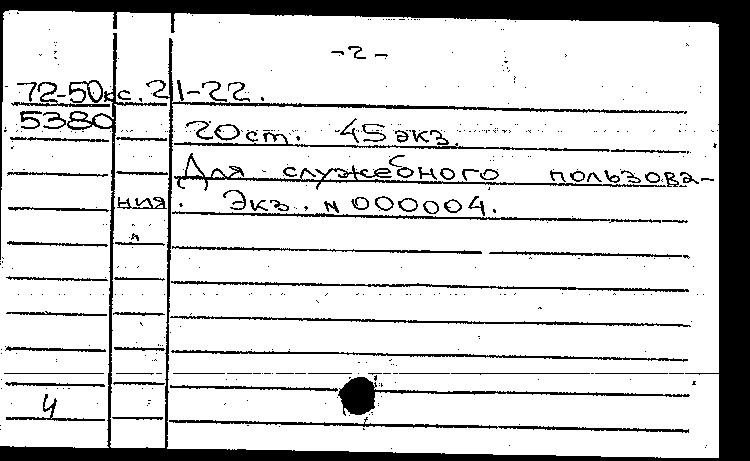 -2-
72-50кс. 21-22.
5380 20 ст. 45 экз.
Для служебного пользова-
ния. Экз. N 000004.
4